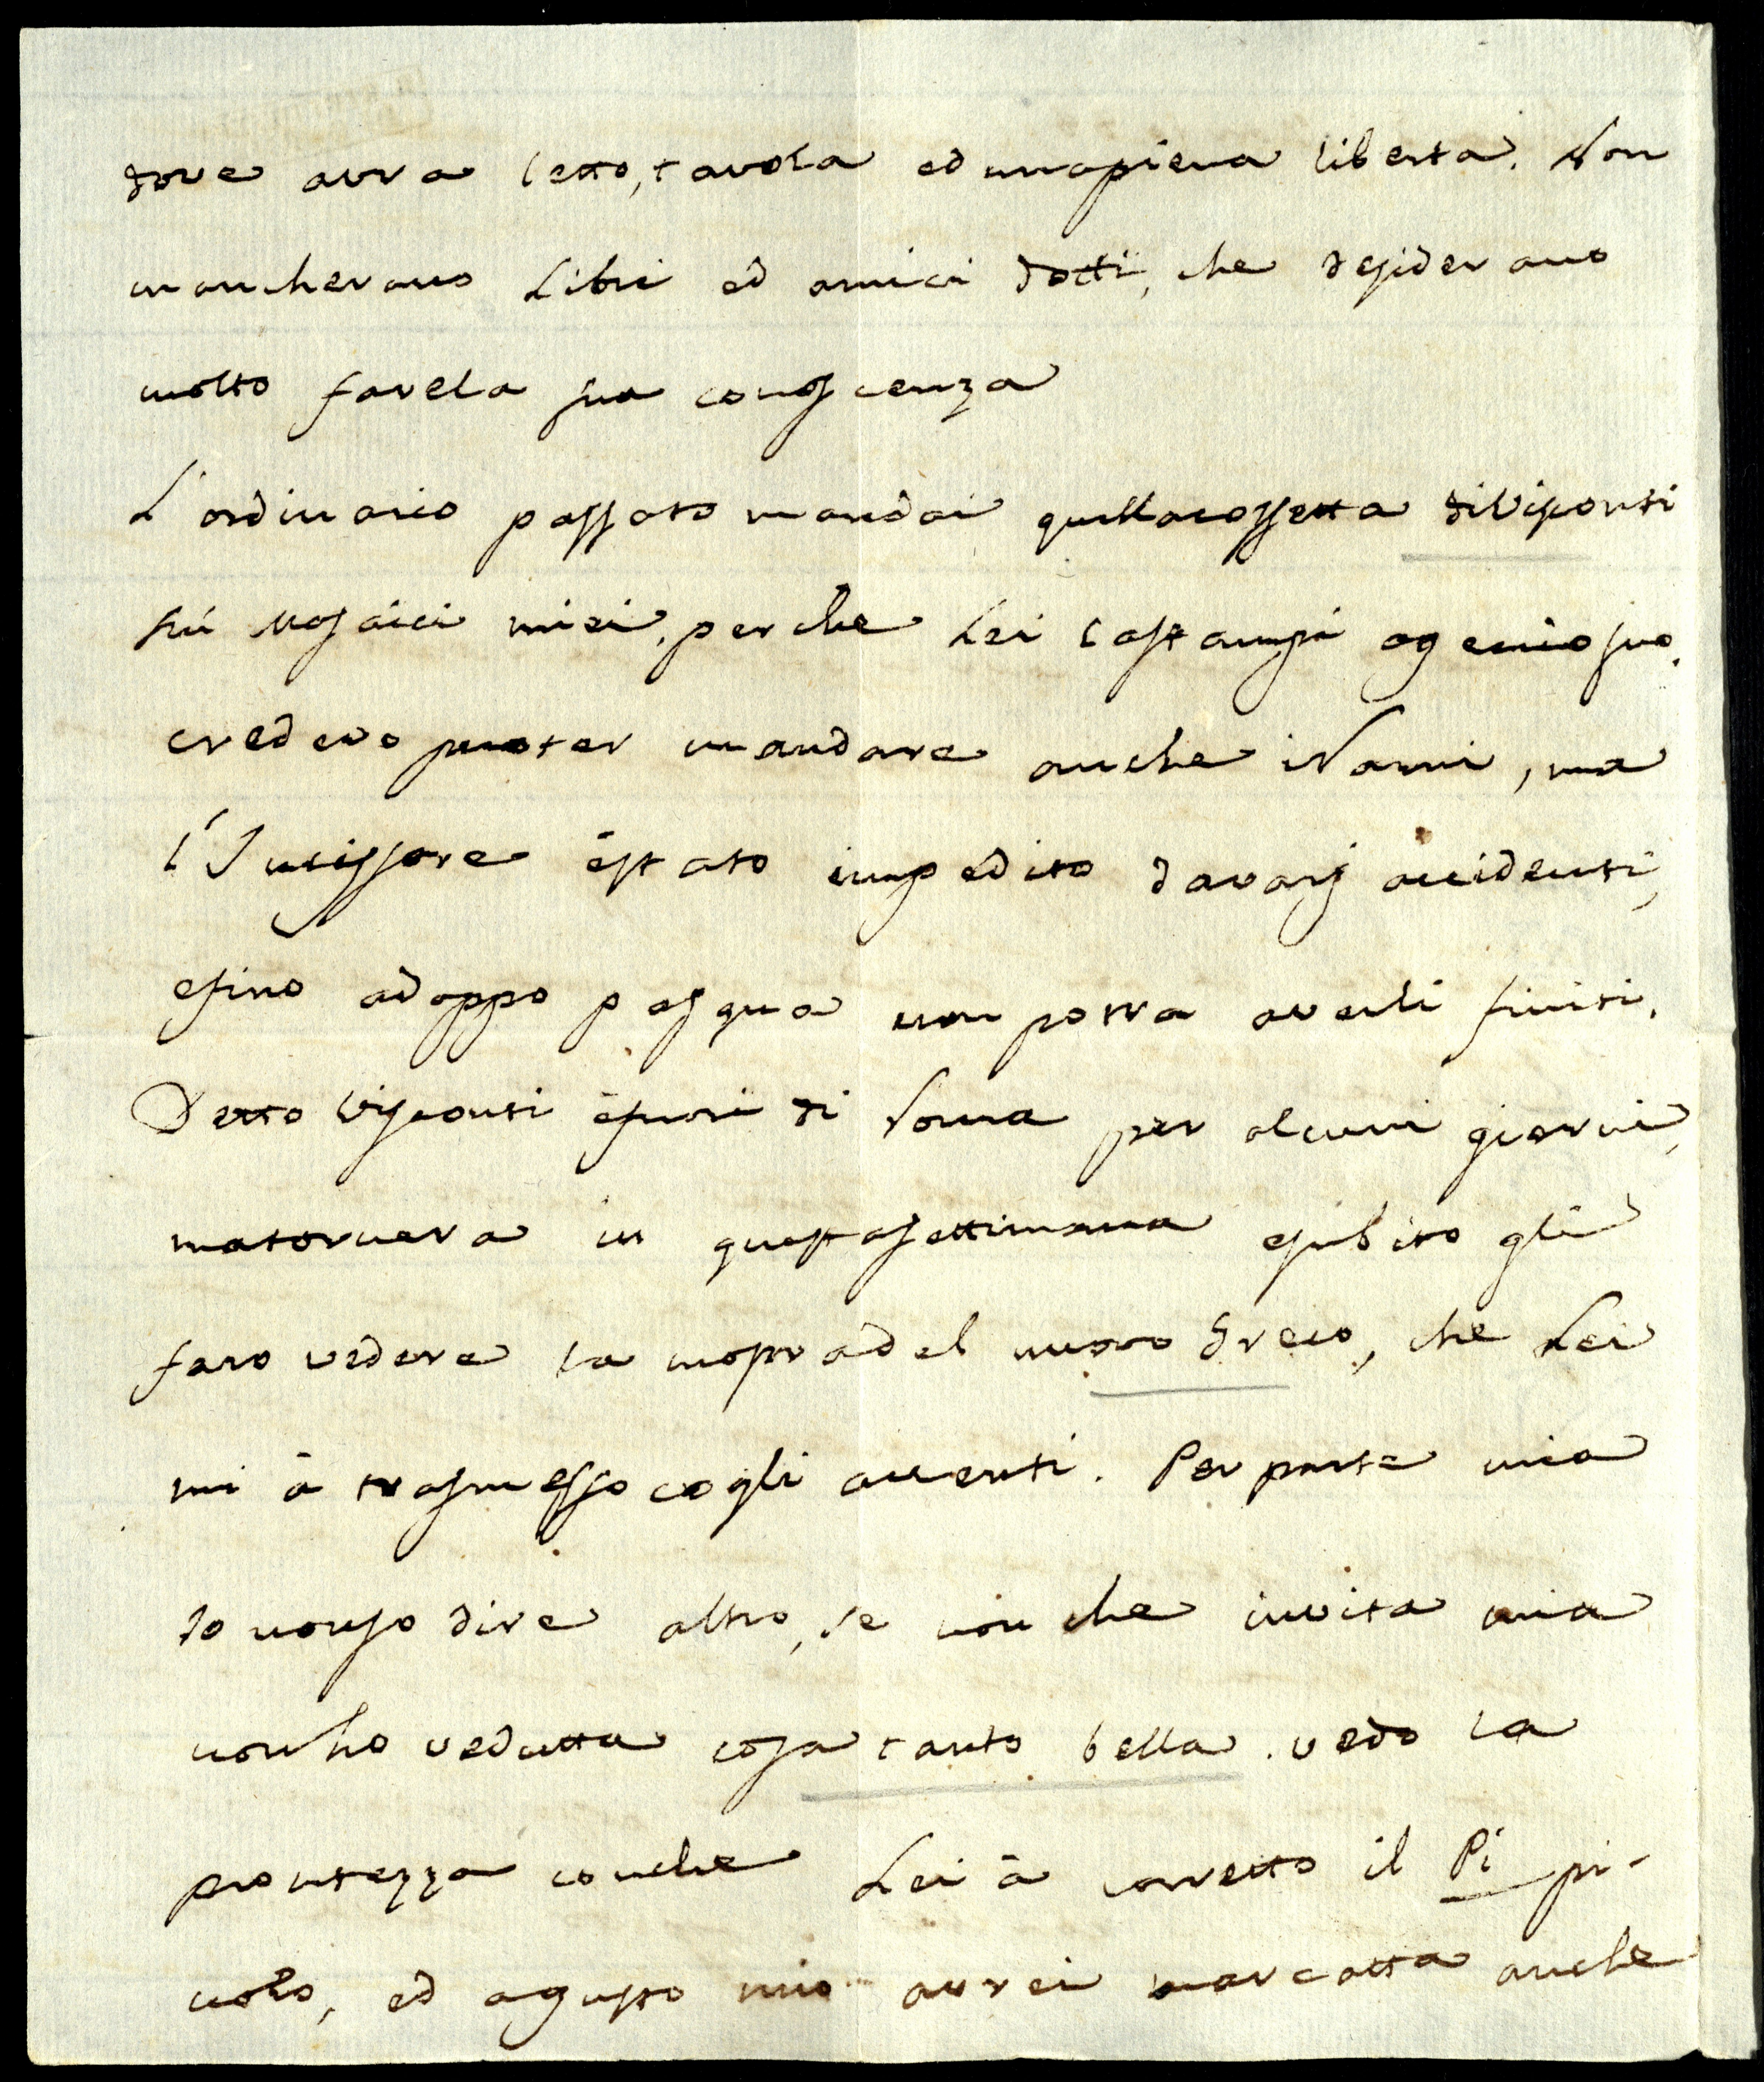 dove avra letto, tavola ed unapiena liberta. Non
mancherano Libri ed amici dotti, che desiderano
molto farela sua conoscenza
L'ordinario passato mandai quellacossetta diVisconti
sú Mosaici miei, perche Lei lastampi agenio suo.
credevo puoter mandare anche iNanni, ma
l'Incissore éstato impedito davarj accidenti,
efino adoppo pasqua non potra averli finiti.
Detto Visconti éfuori di Roma per alcuni giorni,
matornera in questasettimana esubito gli
faro vedere la mostradel nuovo Greco, che Lei
mi à trasmesso cogli accenti. Per parte mia
Io nonso dire altro, se non che invita mia
nonho vedutta cosa tanto bella. vedo la
prontezza conche Lei à corretto il Pi pi-
colo, ed agusto mio avrei marcatta anche